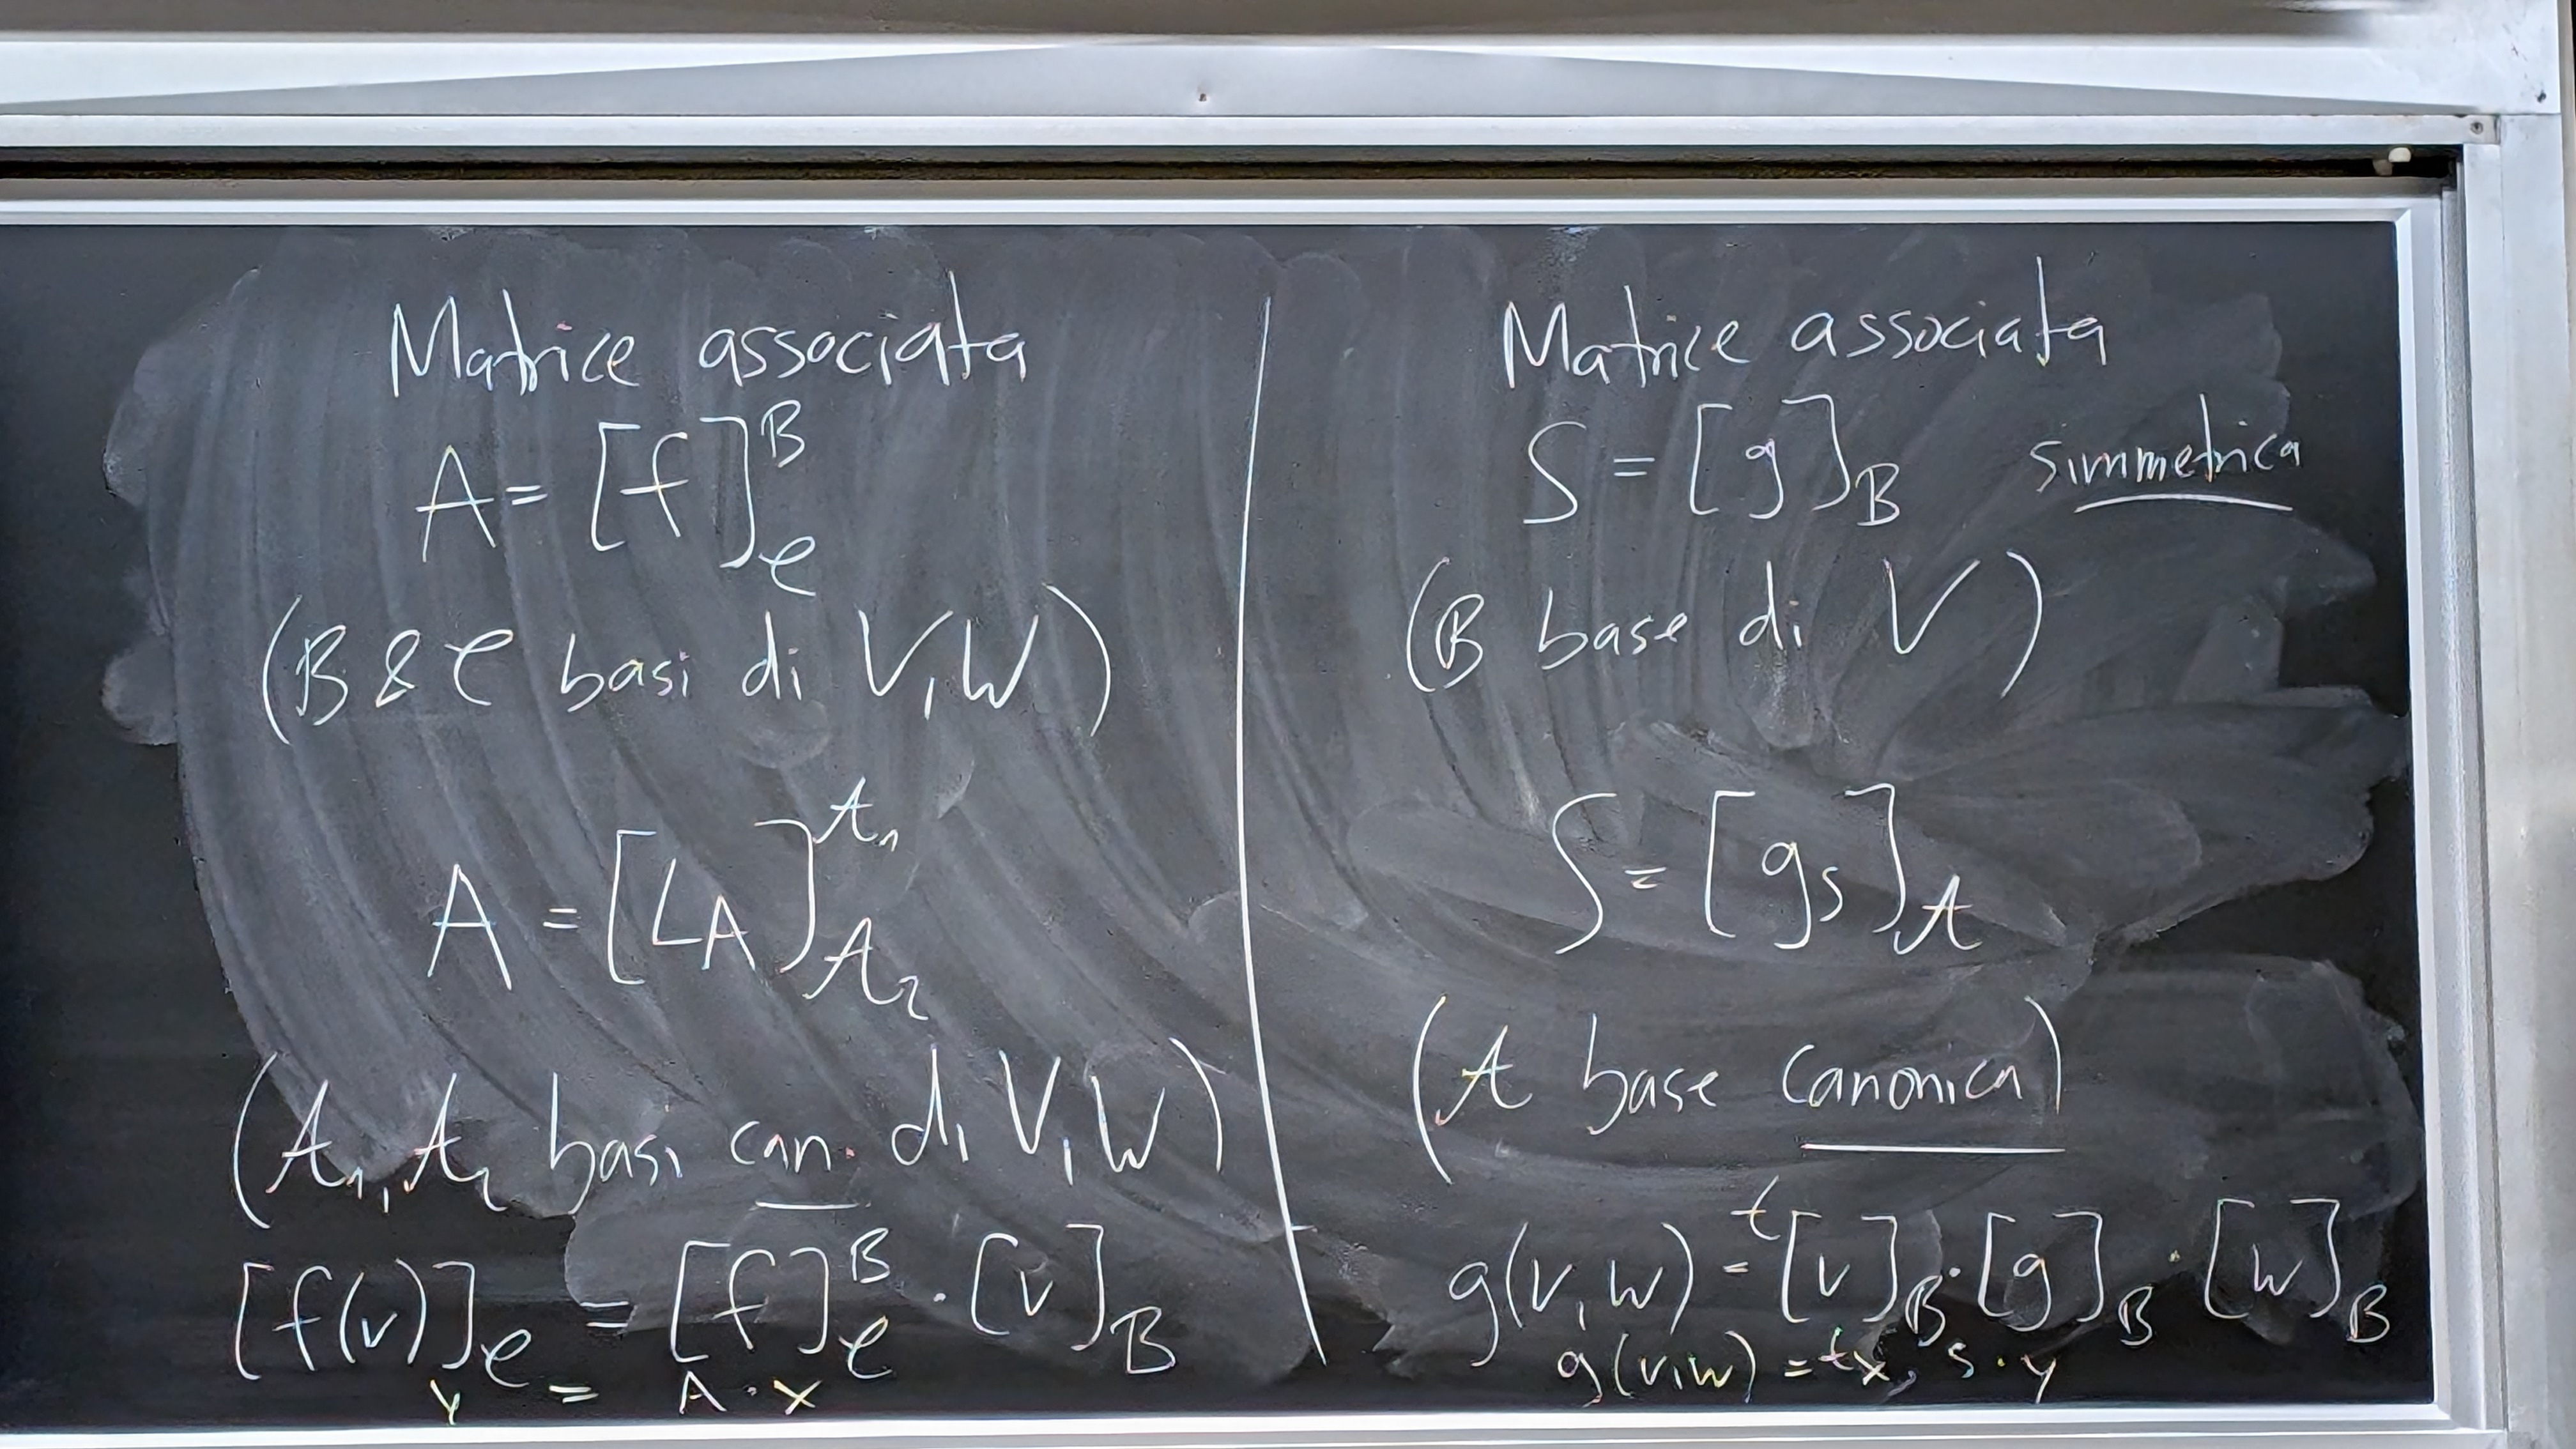 Matrice associata
A = [f]^B_e
(B & e basi di V, W)
A = [L_A]^{A_1}_{A_2}
(A_1, A_2 basi can. di V, W)
[f(v)]_e = [f]^B_e · [v]_B
y = A · x
Matrice associata
S = [g]_B simmetrica
(B base di V)
S = [g_s]_A
(A base canonica)
g(v, w) = ^t[v]_B · [g]_B · [w]_B
g(v, w) = ^tx · S · y